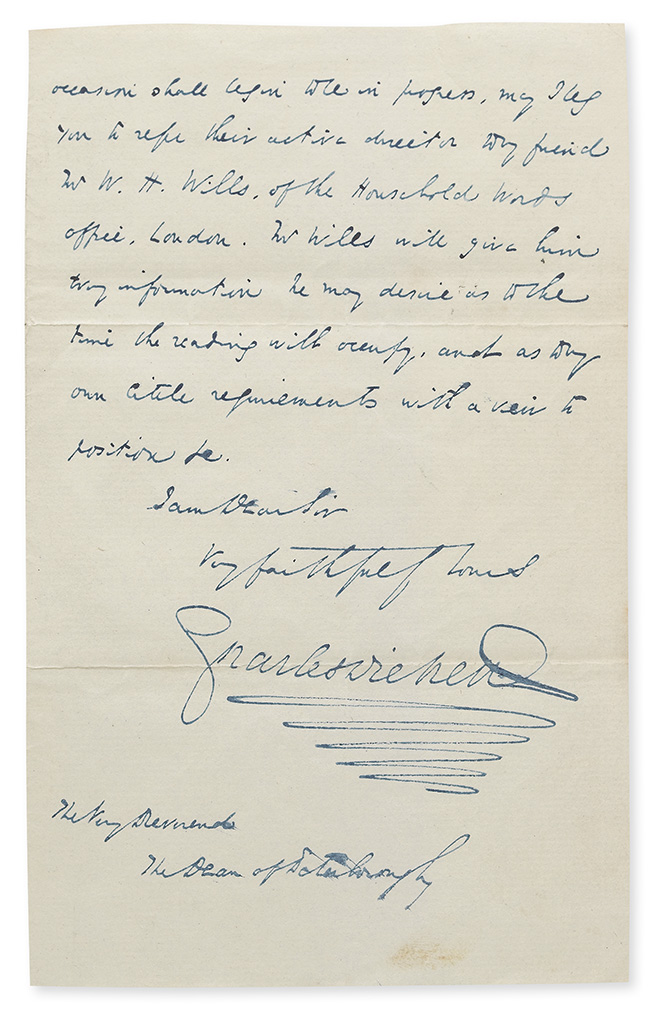 occasion shall begin to be in progress, may I beg
you to refer their active director to my friend
Mr W. H. Wills, of the Household Words
office, London. Mr Wills will give him
any information he may desire as to the
time the reading will occupy, and as to my
own little requirements with a view to
position &c.
I am Dear Sir
Very faithfully Yours
Charles Dickens
The Very Reverend
The Dean of Peterborough